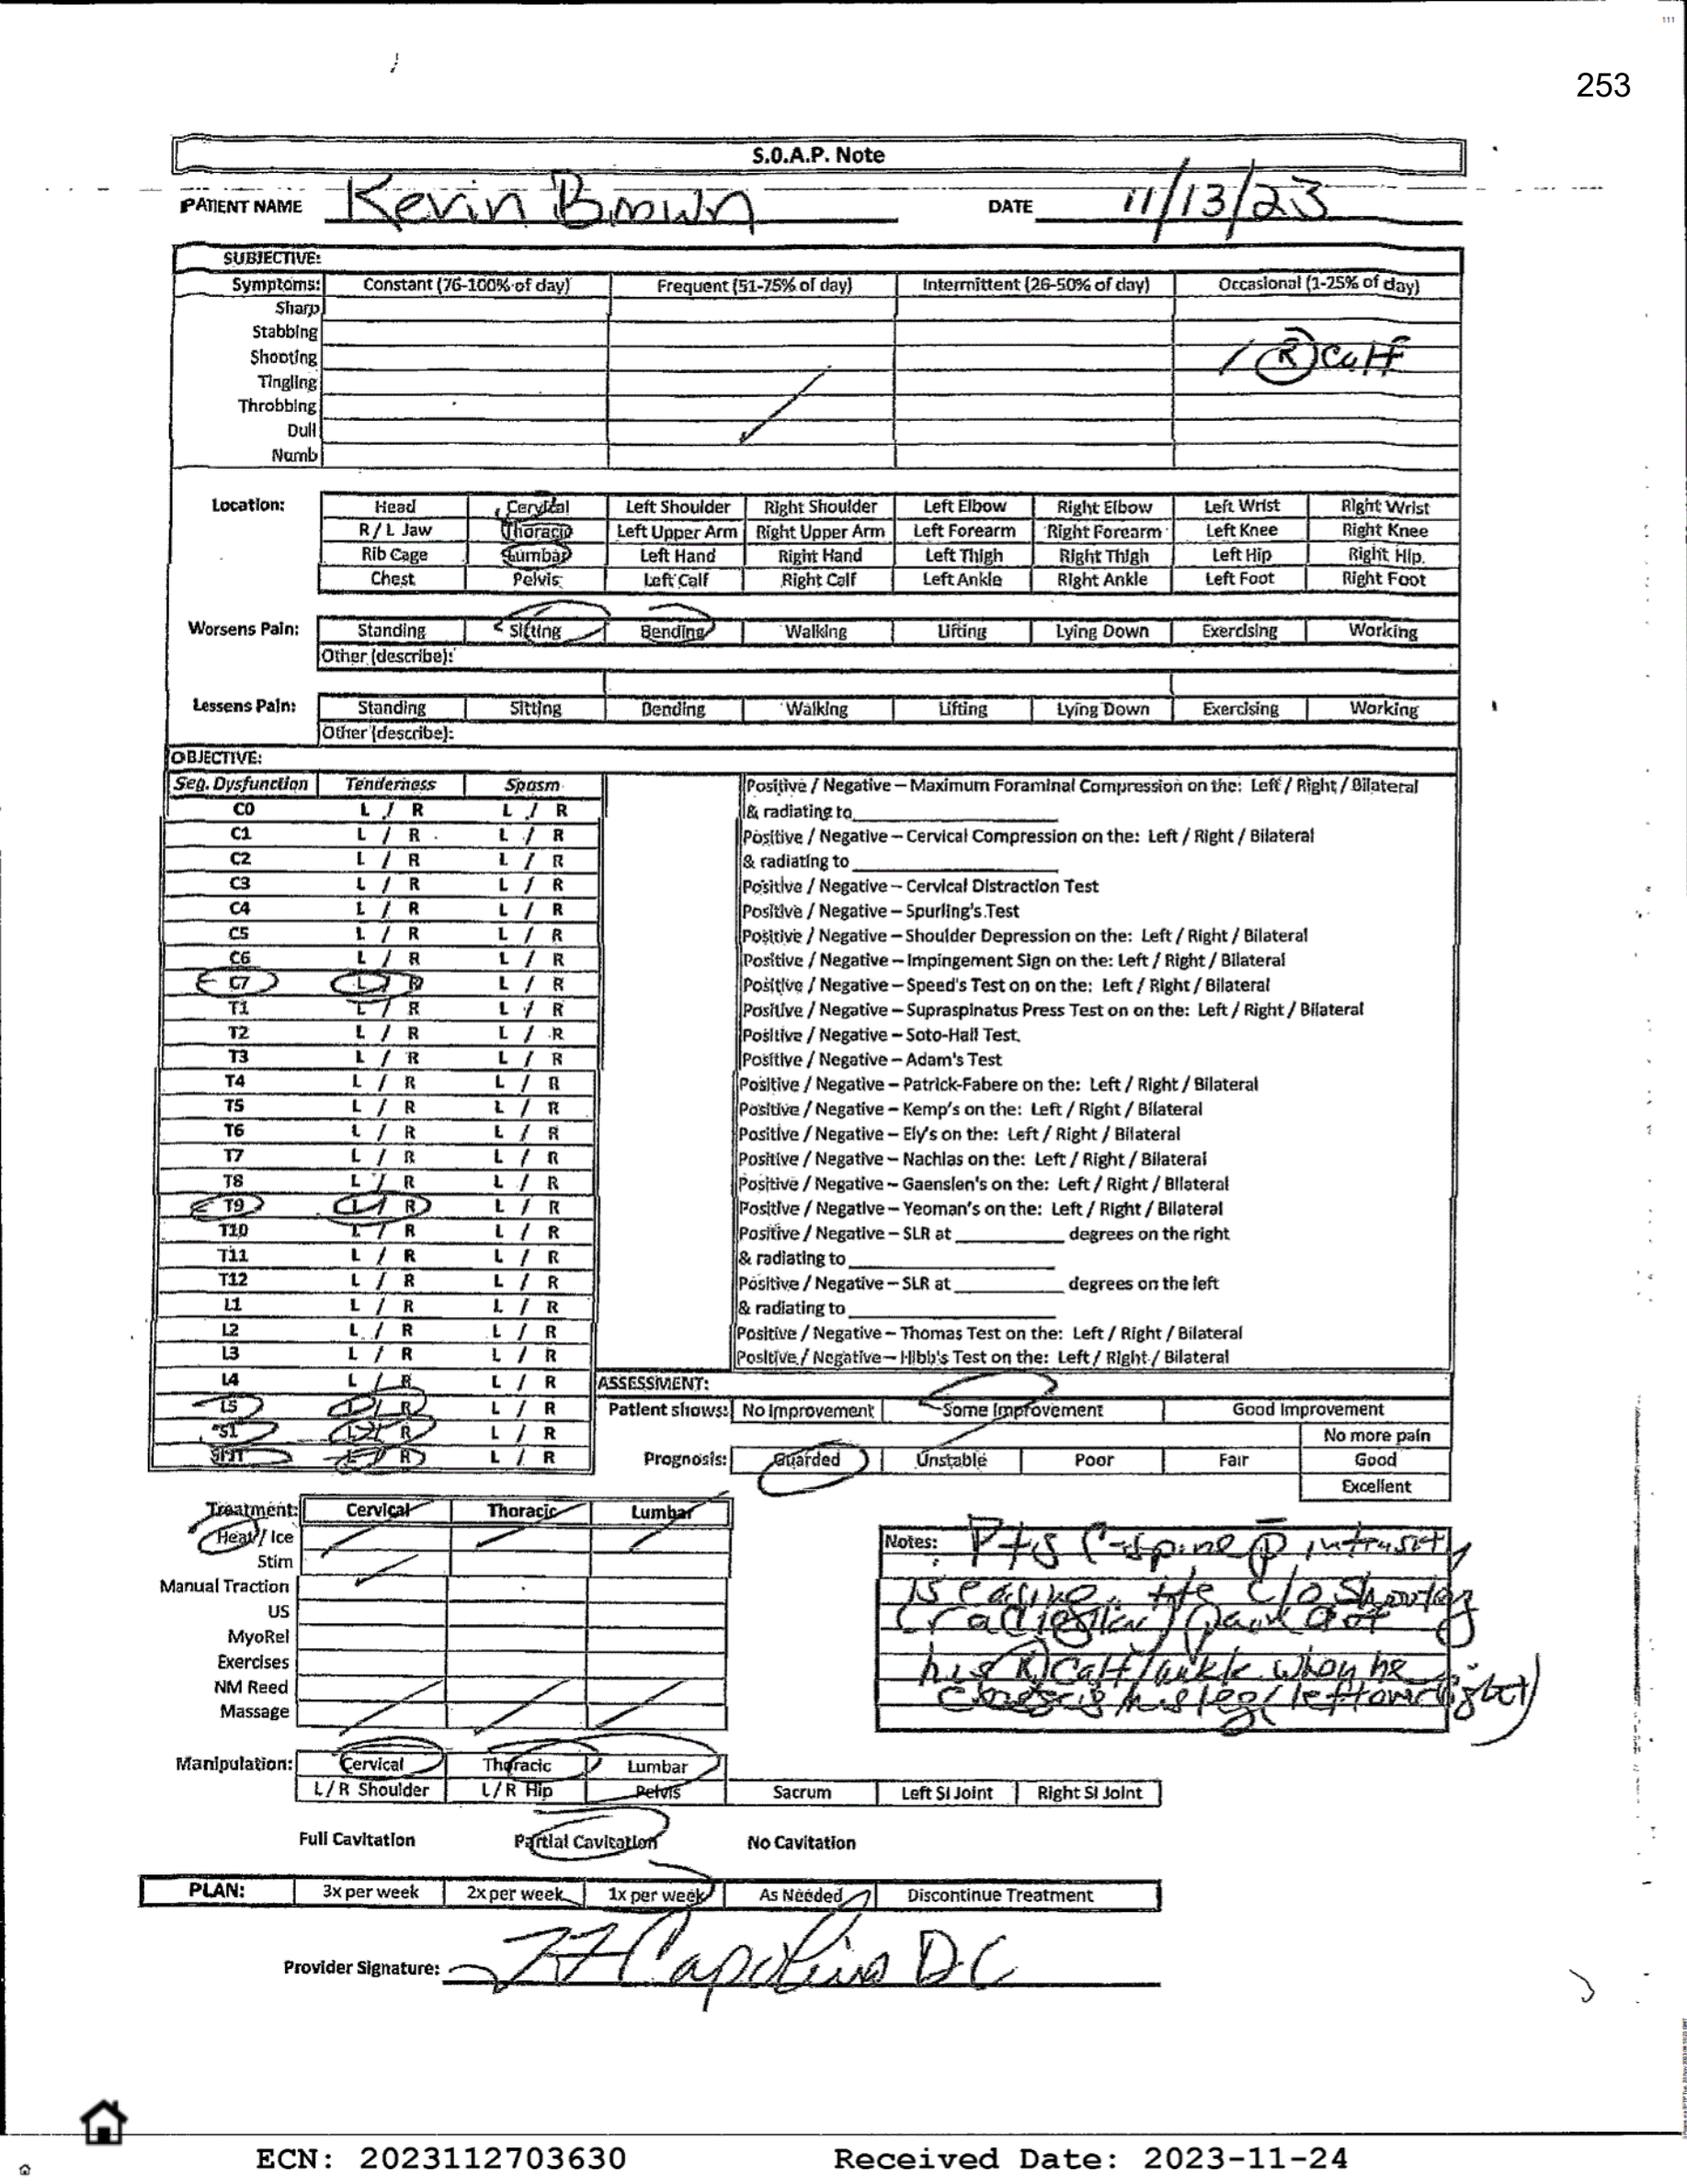 253
S.O.A.P. Note
PATIENT NAME Kevin Brown DATE 11/13/23
SUBJECTIVE:
Symptoms: Constant (76-100% of day) Frequent (51-75% of day) Intermittent (26-50% of day) Occasional (1-25% of day)
Sharp
Stabbing
Shooting R Calf
Tingling
Throbbing
Dull
Numb
Location: Head Cervical Left Shoulder Right Shoulder Left Elbow Right Elbow Left Wrist Right Wrist
R / L Jaw Thoracic Left Upper Arm Right Upper Arm Left Forearm Right Forearm Left Knee Right Knee
Rib Cage Lumbar Left Hand Right Hand Left Thigh Right Thigh Left Hip Right Hip
Chest Pelvis Left Calf Right Calf Left Ankle Right Ankle Left Foot Right Foot
Worsens Pain: Standing Sitting Bending Walking Lifting Lying Down Exercising Working
Other (describe):
Lessens Pain: Standing Sitting Bending Walking Lifting Lying Down Exercising Working
Other (describe):
OBJECTIVE:
Seg. Dysfunction Tenderness Spasm Positive / Negative – Maximum Foraminal Compression on the: Left / Right / Bilateral
C0 L / R L / R & radiating to
C1 L / R L / R Positive / Negative – Cervical Compression on the: Left / Right / Bilateral
C2 L / R L / R & radiating to
C3 L / R L / R Positive / Negative – Cervical Distraction Test
C4 L / R L / R Positive / Negative – Spurling's Test
C5 L / R L / R Positive / Negative – Shoulder Depression on the: Left / Right / Bilateral
C6 L / R L / R Positive / Negative – Impingement Sign on the: Left / Right / Bilateral
C7 L / R L / R Positive / Negative – Speed's Test on on the: Left / Right / Bilateral
T1 L / R L / R Positive / Negative – Supraspinatus Press Test on on the: Left / Right / Bilateral
T2 L / R L / R Positive / Negative – Soto-Hall Test
T3 L / R L / R Positive / Negative – Adam's Test
T4 L / R L / R Positive / Negative – Patrick-Fabere on the: Left / Right / Bilateral
T5 L / R L / R Positive / Negative – Kemp's on the: Left / Right / Bilateral
T6 L / R L / R Positive / Negative – Ely's on the: Left / Right / Bilateral
T7 L / R L / R Positive / Negative – Nachlas on the: Left / Right / Bilateral
T8 L / R L / R Positive / Negative – Gaenslen's on the: Left / Right / Bilateral
T9 L / R L / R Positive / Negative – Yeoman's on the: Left / Right / Bilateral
T10 L / R L / R Positive / Negative – SLR at degrees on the right
T11 L / R L / R & radiating to
T12 L / R L / R Positive / Negative – SLR at degrees on the left
L1 L / R L / R & radiating to
L2 L / R L / R Positive / Negative – Thomas Test on the: Left / Right / Bilateral
L3 L / R L / R Positive / Negative – Hibb's Test on the: Left / Right / Bilateral
L4 L / R L / R ASSESSMENT:
L5 L / R L / R Patient shows: No Improvement Some Improvement Good Improvement
S1 L / R L / R No more pain
L / R L / R Prognosis: Guarded Unstable Poor Fair Good
Excellent
Treatment: Cervical Thoracic Lumbar
Heat / Ice
Stim
Manual Traction
US
MyoRel
Exercises
NM Reed
Massage
Notes: Pt's C-spine P intensity
is easing. He c/o shooting
(radicular) pain out
his R calf/ankle when he
crosses his leg (left over right)
Manipulation: Cervical Thoracic Lumbar
L / R Shoulder L / R Hip Pelvis Sacrum Left SI Joint Right SI Joint
Full Cavitation Partial Cavitation No Cavitation
PLAN: 3x per week 2x per week 1x per week As Needed Discontinue Treatment
Provider Signature: DC
ECN: 2023112703630 Received Date: 2023-11-24